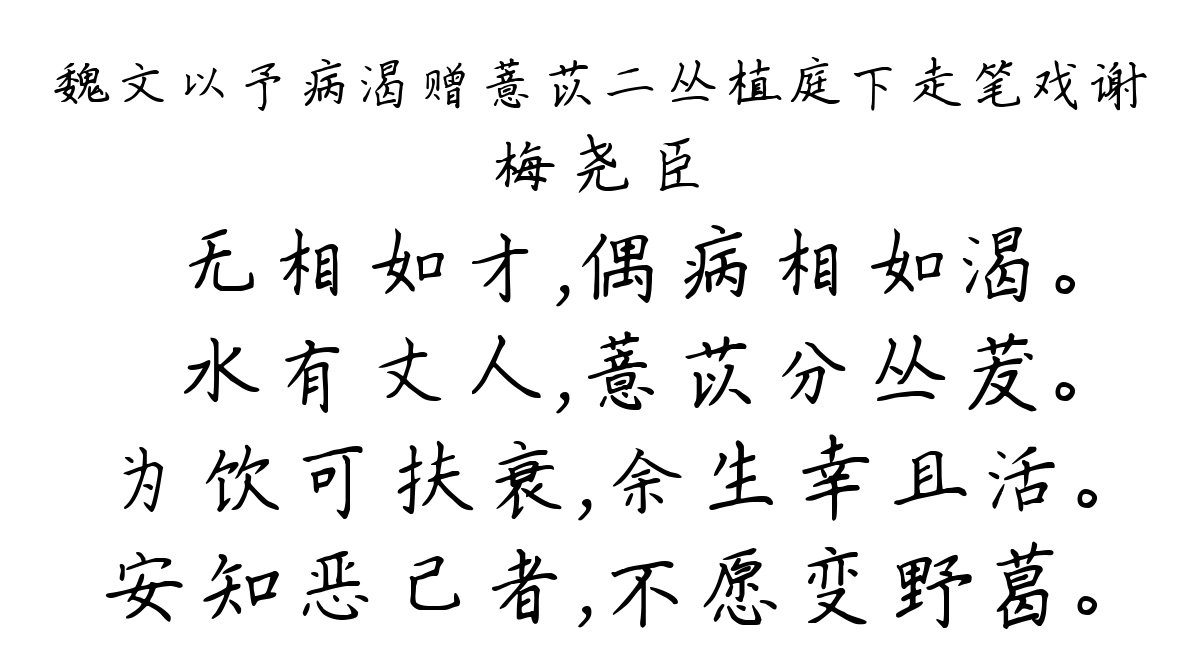 魏文以予病渴赠薏苡二丛植庭下走笔戏谢
梅尧臣
无相如才,偶病相如渴。
水有丈人,薏苡分丛茇。
为饮可扶衰,余生幸且活。
安知恶己者,不愿变野葛。